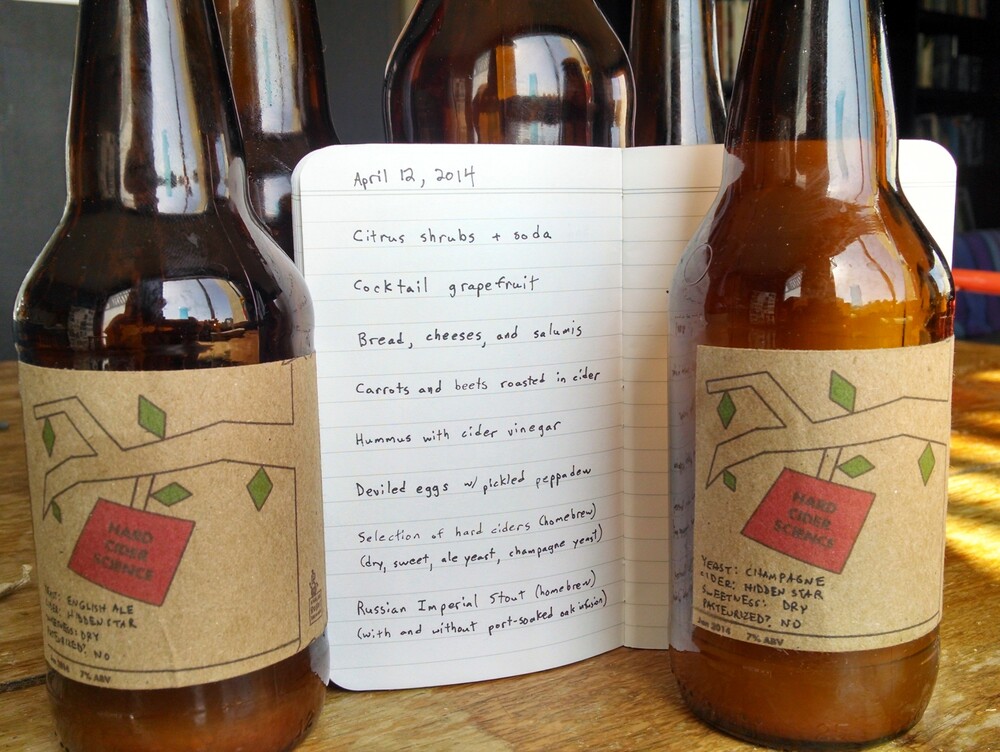 April 12, 2014
Citrus shrubs + soda
Cocktail grapefruit
Bread, cheeses, and salumis
Carrots and beets roasted in cider
Hummus with cider vinegar
Deviled eggs w/ pickled peppadew
Selection of hard ciders (homebrew)
(dry, sweet, ale yeast, champagne yeast)
Russian Imperial Stout (homebrew)
(with and without port-soaked oak infusion)
HARD
CIDER
SCIENCE
ENGLISH ALE
HIDDEN STAR
DRY
NO
2014 7% ABV
HARD
CIDER
SCIENCE
YEAST: CHAMPAGNE
CIDER: HIDDEN STAR
SWEETNESS: DRY
PASTEURIZED?: NO
Jan 2014 7% ABV